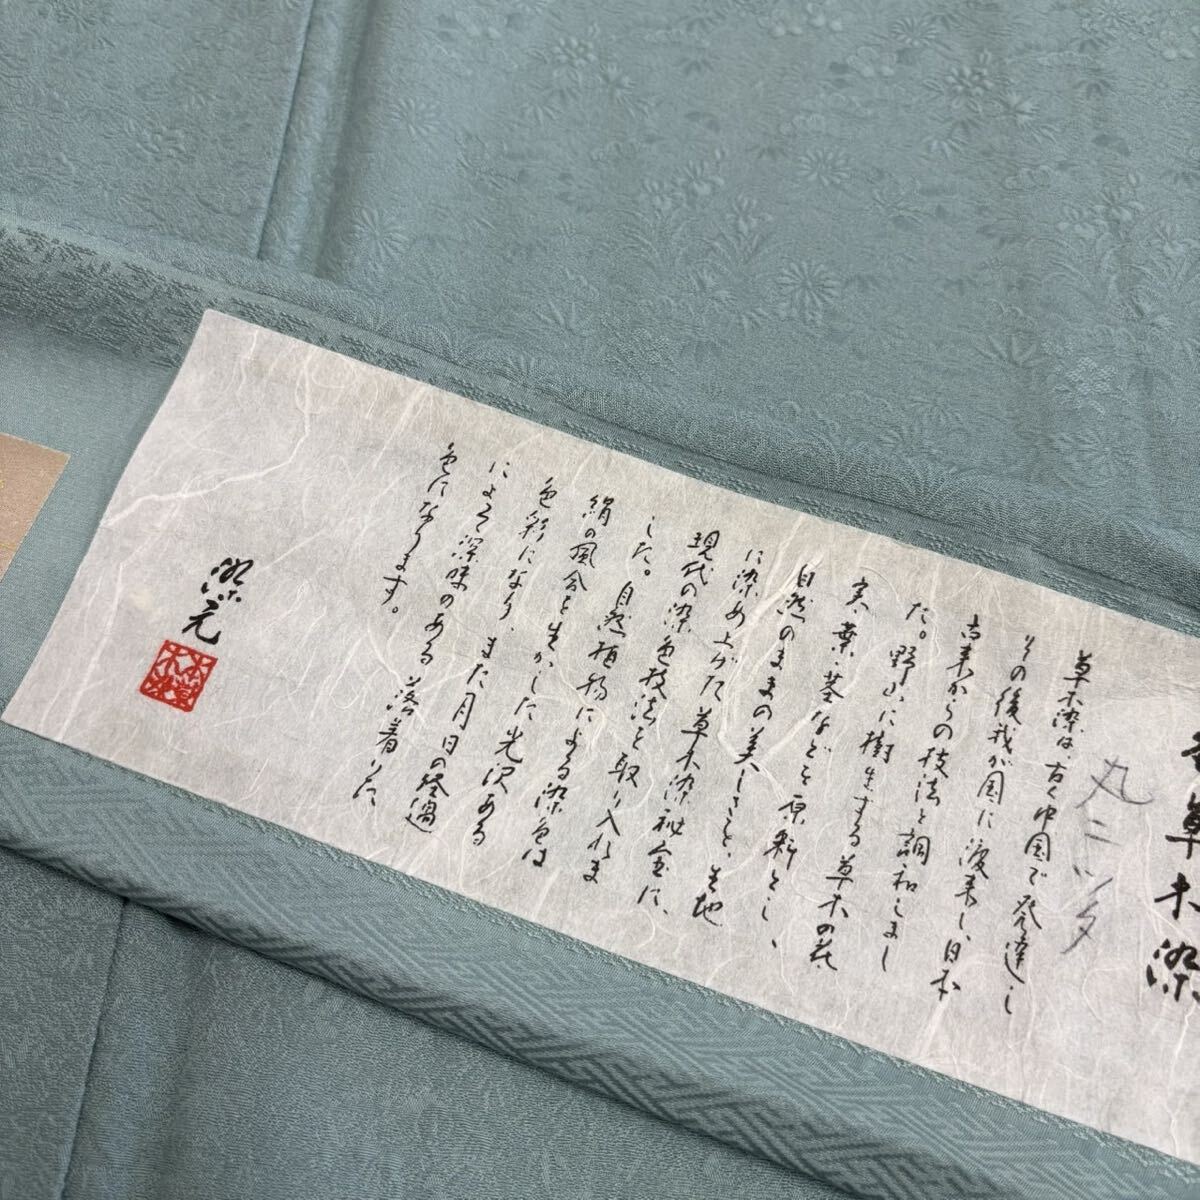 草木染
丸三ツ夕
草木染は、古く中国で発達し
その後我が国に渡来し、日本
古来からの技法と調和しまし
た。野山に樹生する草木の花
実・葉・茎などを原料とし、
自然のままの美しさを、生地
に染め上げた草木染秘全に、
現代の染色技法を取り入れま
した。自然植物による染色は
絹の風合を生かした光沢ある
色彩になり、また月日の経過
によって深味のある落着いた
色になります。
染元